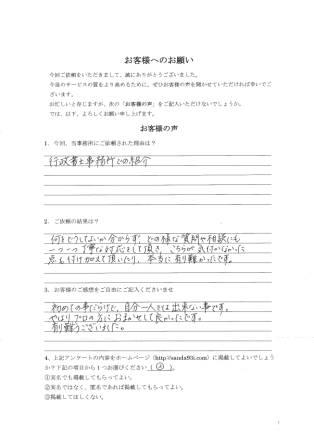 お客様へのお願い
今回ご依頼をいただきまして、誠にありがとうございました。
今後のサービスの質をより高めるために、ぜひお客様の声を聞かせていただければ幸いでご
ざいます。
お忙しいと存じますが、次の「お客様の声」をご記入いただけないでしょうか。
では、以下、よろしくお願い申し上げます。
お客様の声
1．今回、当事務所にご依頼された理由は？
行政書士事務所での紹介
2．ご依頼の結果は？
何をどうしてよいか分からず、どの様な質問や相談にも
一つ一つ丁寧な対応をして頂き、こちらが気付かなかった
点も付け加えて頂いたり、本当に有難かったです。
3．お客様のご感想をご自由にご記入くださいませ
初めての事だらけで、自分一人では出来ない事です。
やはりプロの方におまかせして良かったです。
有難うございました。
4．上記アンケートの内容をホームページ（http://sanda93i.com）に掲載してよいでしょう
か？下記の項目から1つお選びください（ ② ）。
①実名でも掲載してもらってよい。
②実名ではなく、匿名（イニシャルなど）であれば掲載してもらってよい。
③掲載してほしくない。
1